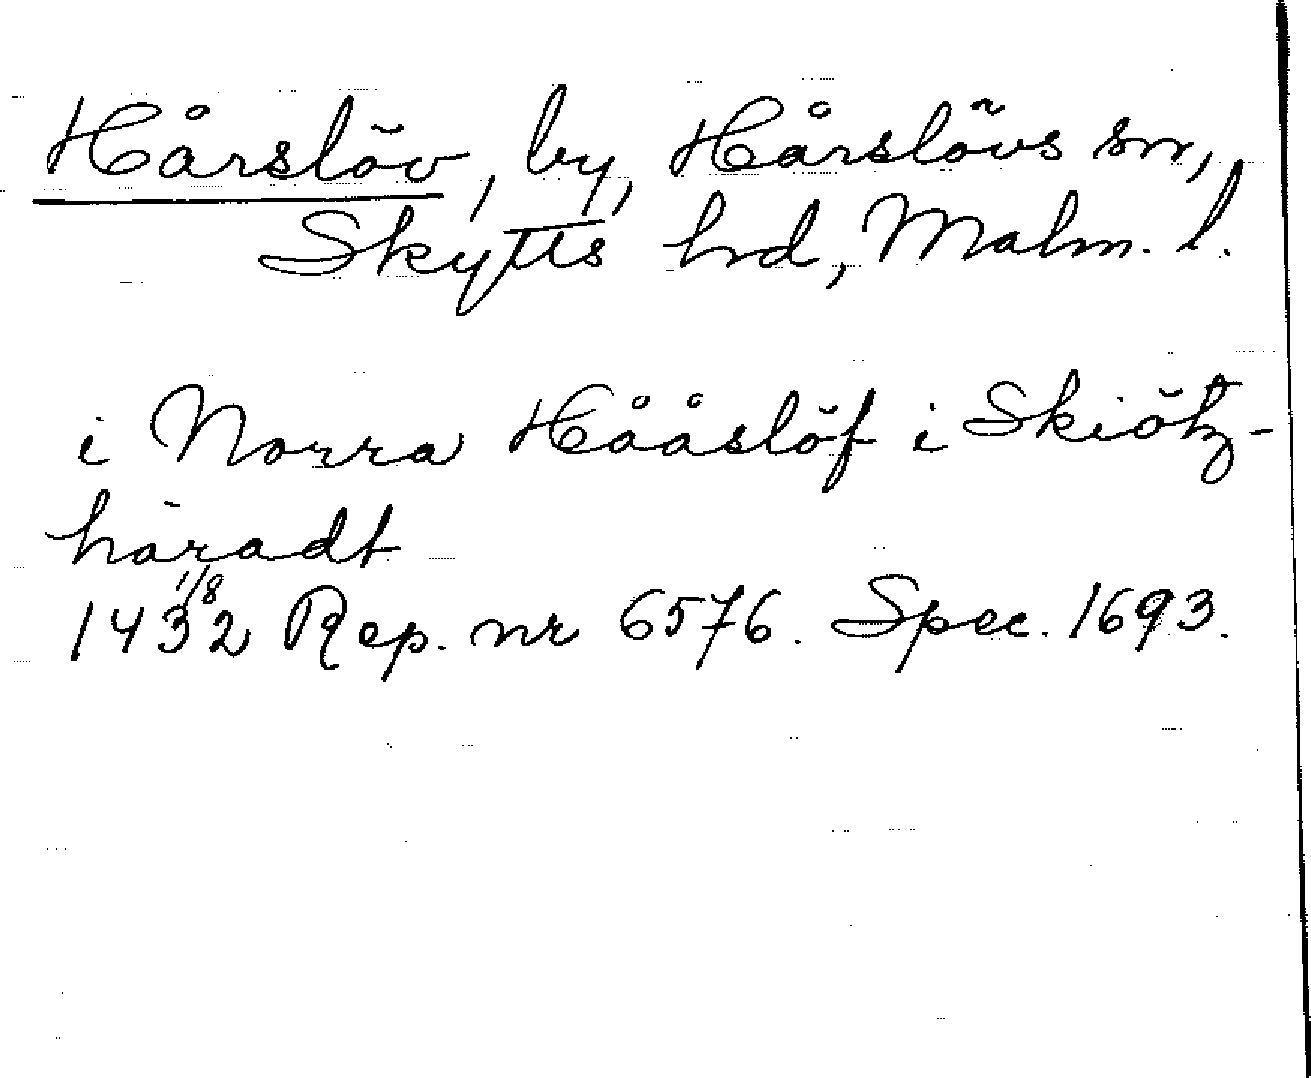 Hårslöv, by, Hårslövs sn,
Skytts hrd, Malm. l.
i Norra Hååslöf i Skiötz-
häradt
1432 1/8 Rep. nr 6576. Spec. 1693.